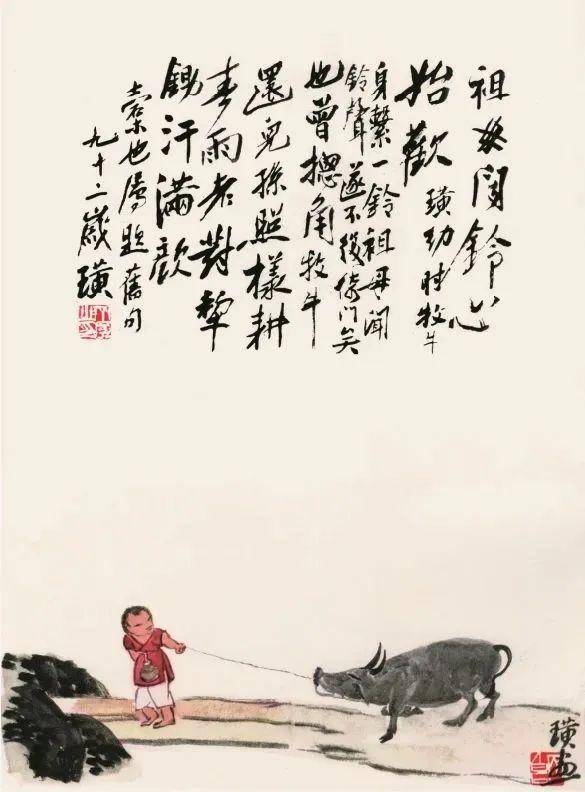 祖母聞鈴心
始歡 璜幼時牧牛
身繫一鈴祖母聞
鈴聲遂不復倚門矣
也曾摠角牧牛
還兒孫照樣耕
春雨老對犂
鋤汗滿顏
也屬題舊句
九十二歲璜
璜畫